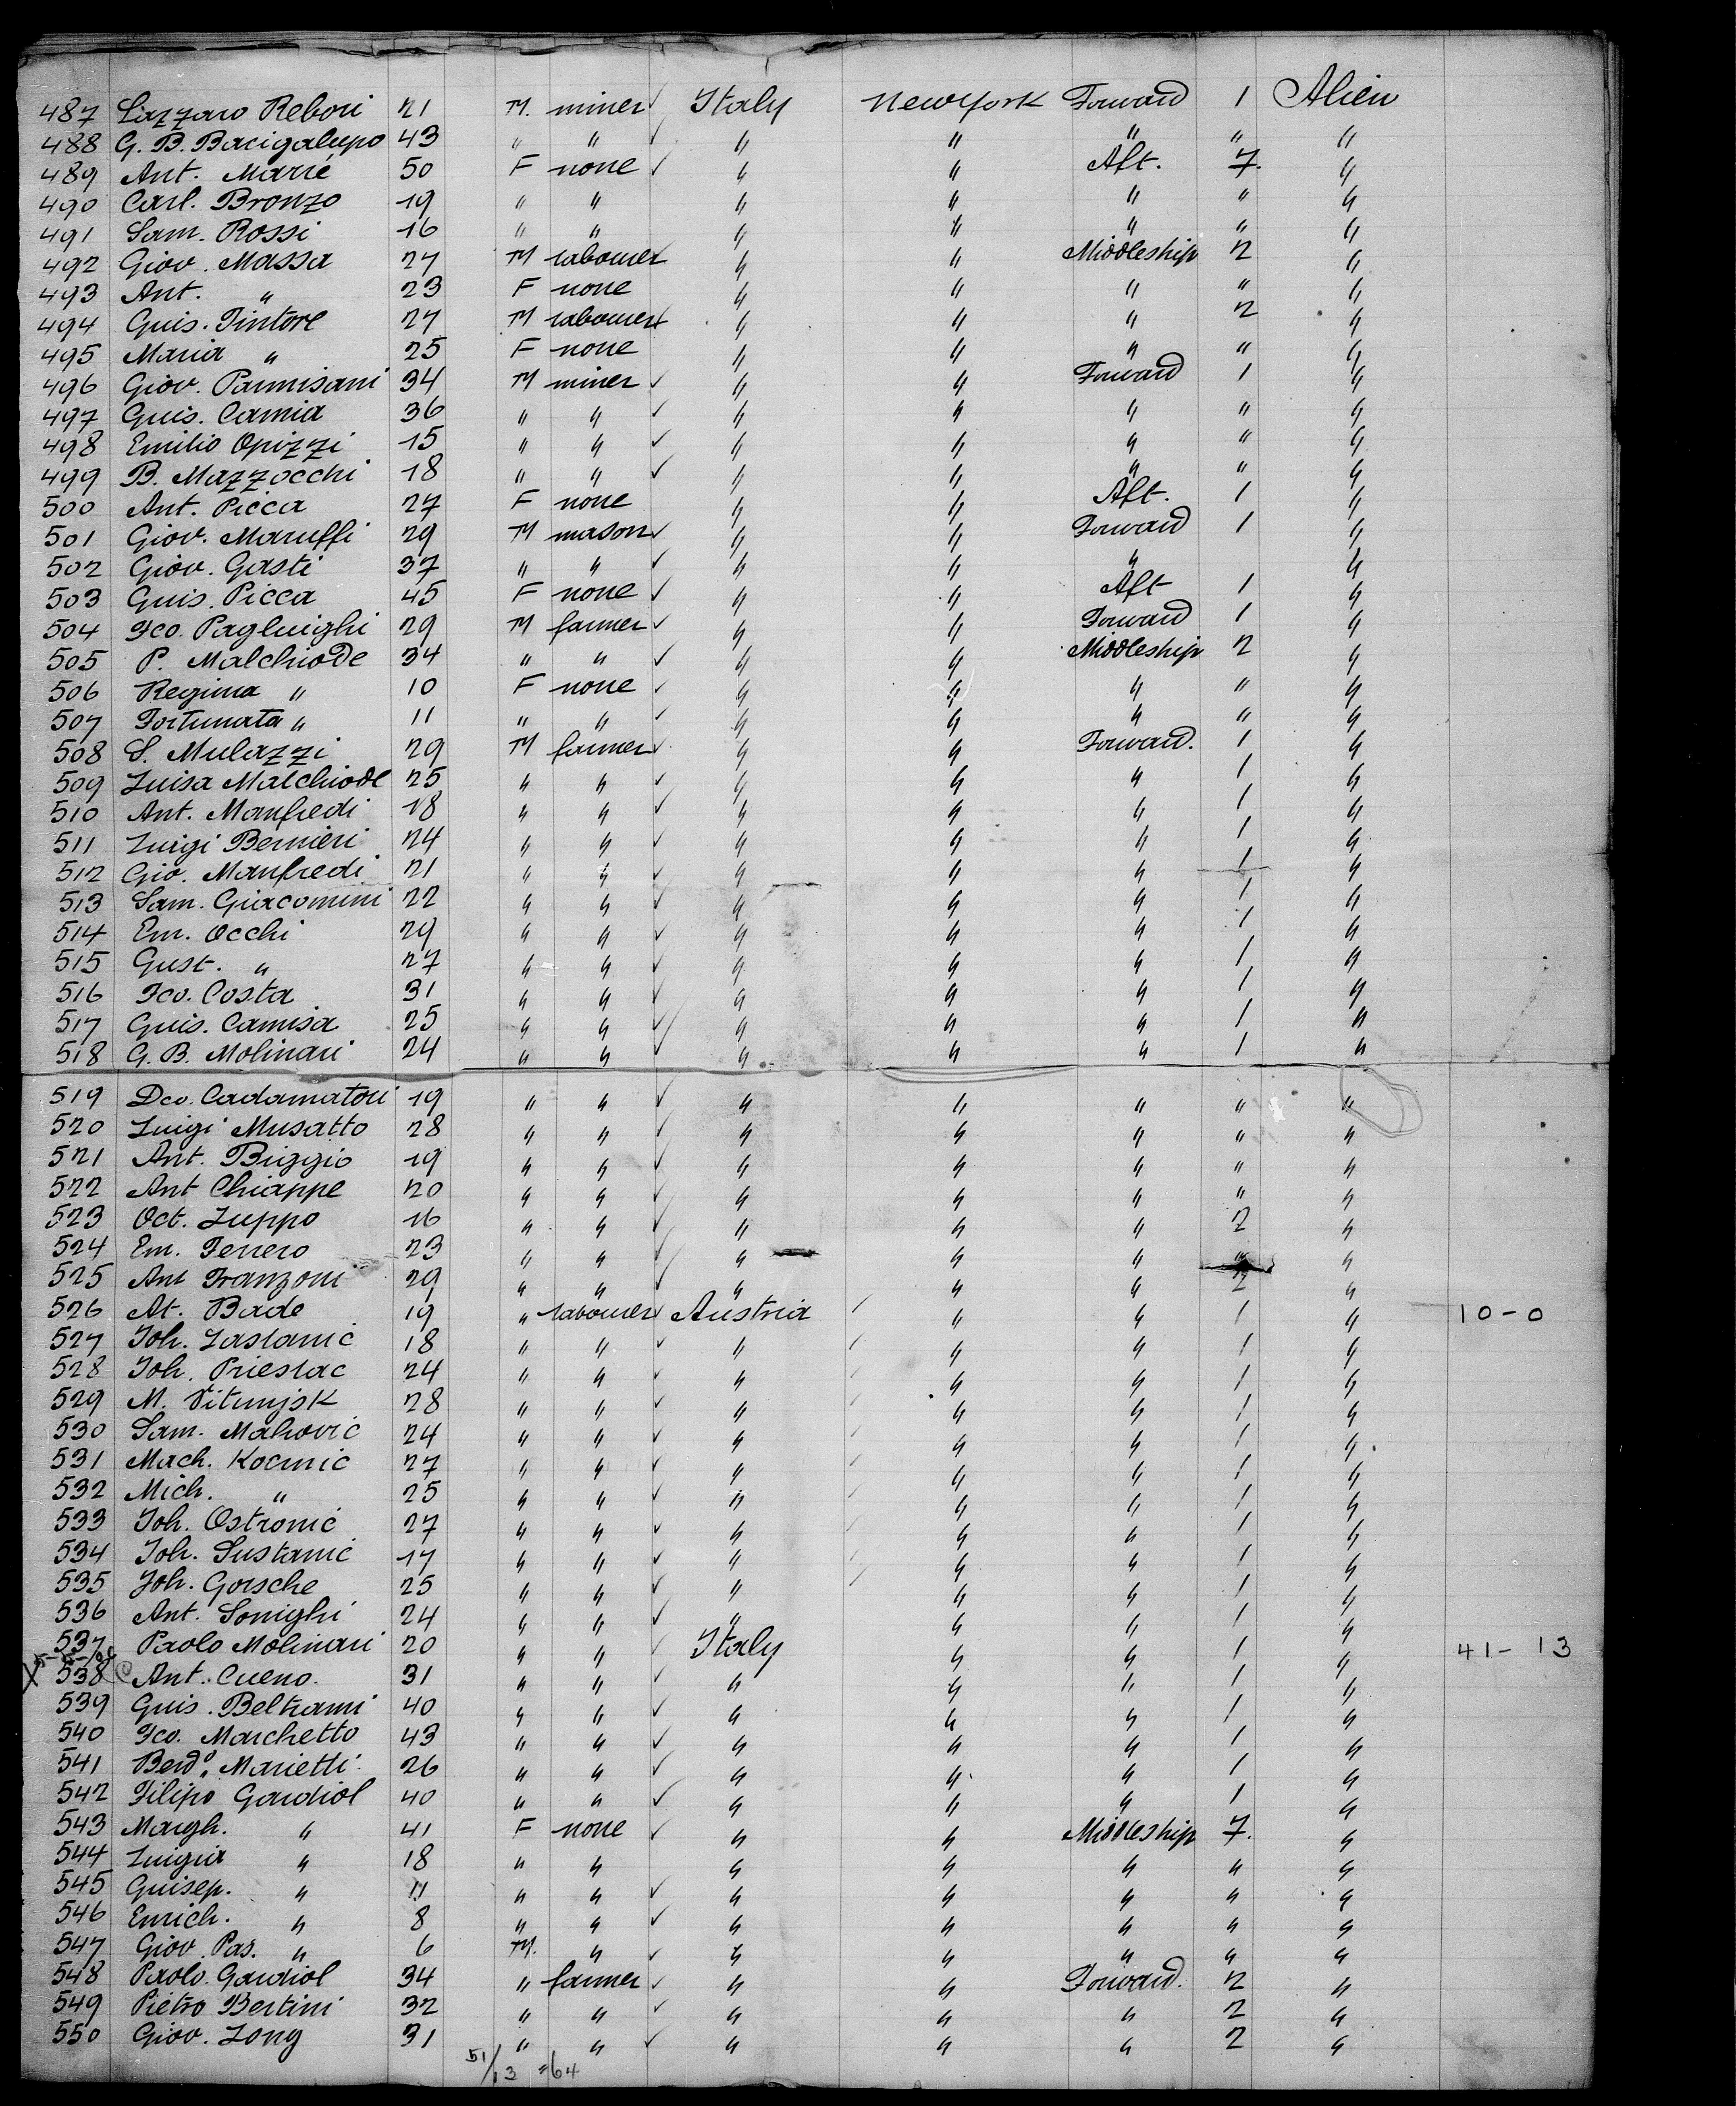 487 Lazzaro Rebori 21 M. miner ✓ Italy New York Forward 1 Alien
488 G. B. Bacigalupo 43 " " ✓ " " " " "
489 Ant. Marié 50 F none ✓ " " Aft. 7. "
490 Carl. Bronzo 19 " " " " " " "
491 Sam. Rossi 16 " " " " " " "
492 Giov. Massa 27 M labourer " " Middleship 2 "
493 Ant. " 23 F none " " " " "
494 Guis. Tintore 27 M labourer " " " 2 "
495 Maria " 25 F none " " " " "
496 Giov. Parmisani 34 M miner ✓ " " Forward 1 "
497 Guis. Camia 36 " " ✓ " " " " "
498 Emilio Opizzi 15 " " ✓ " " " " "
499 B. Mazzocchi 18 " " ✓ " " " " "
500 Ant. Picca 27 F none " " Aft. 1 "
501 Giov. Maruffi 29 M mason ✓ " " Forward 1 "
502 Giov. Gasti 37 " " ✓ " " " "
503 Guis. Picca 45 F none ✓ " " Aft 1 "
504 Fco. Pagluighi 29 M farmer ✓ " " Forward 1 "
505 P. Malchiode 34 " " ✓ " " Middleship 2 "
506 Regina " 10 F none ✓ " " " " "
507 Fortunata " 11 " " ✓ " " " " "
508 S. Mulazzi 29 M farmer ✓ " " Forward. 1 "
509 Luisa Malchiode 25 " " ✓ " " " 1 "
510 Ant. Manfredi 18 " " ✓ " " " 1 "
511 Luigi Bernieri 24 " " ✓ " " " 1 "
512 Gio. Manfredi 21 " " ✓ " " " 1 "
513 Sam. Giacomini 22 " " ✓ " " " 1 "
514 Em. Occhi 29 " " ✓ " " " 1 "
515 Gust. " 27 " " ✓ " " " 1 "
516 Fco. Costa 31 " " ✓ " " " 1 "
517 Guis. Camisa 25 " " ✓ " " " 1 "
518 G. B. Molinari 24 " " ✓ " " " 1 "
519 Dco. Cadamatori 19 " " ✓ " " " " "
520 Luigi Musatto 28 " " ✓ " " " " "
521 Ant. Biggio 19 " " ✓ " " " " "
522 Ant Chiappe 20 " " ✓ " " " " "
523 Oct. Luppo 16 " " ✓ " " " 2 "
524 Em. Ferrero 23 " " ✓ " " " " "
525 Ant Franzoni 29 " " ✓ " " " 2 "
526 At. Bade 19 " labourer ✓ Austria " " 1 " 10-0
527 Joh. Laslanic 18 " " ✓ " " " 1 "
528 Joh. Prieslac 24 " " ✓ " " " 1 "
529 M. 28 " " ✓ " " " 1 "
530 Sam. Mahovic 24 " " ✓ " " " 1 "
531 Mach. Kocmic 27 " " ✓ " " " 1 "
532 Mich. " 25 " " ✓ " " " 1 "
533 Joh. Ostronic 27 " " ✓ " " " 1 "
534 Joh. Sustanic 17 " " ✓ " " " 1 "
535 Joh. Gorsche 25 " " ✓ " " " 1 "
536 Ant. Sonighi 24 " " ✓ " " " 1 "
537 Paolo Molinari 20 " " ✓ Italy " " 1 " 41-13
X 538 Ant. Cueno. 31 " " ✓ " " " 1 "
539 Guis. Beltrami 40 " " ✓ " " " 1 "
540 Fco. Marchetto 43 " " ✓ " " " 1 "
541 Berdo. Marietti 26 " " ✓ " " " 1 "
542 Filipo Gardiol 40 " " ✓ " " " 1 "
543 Margh. " 41 F none ✓ " " Middleship 7. "
544 Luigia " 18 " " " " " " "
545 Guisep. " 11 " " ✓ " " " " "
546 Enrich. " 8 " " ✓ " " " " "
547 Giov. Pas. " 6 M. " ✓ " " " " "
548 Paolo. Gardiol 34 " farmer ✓ " " Forward. 2 "
549 Pietro Bertini 32 " " ✓ " " " 2 "
550 Giov. Long 31 " " ✓ " " " 2 "
51/13 =64